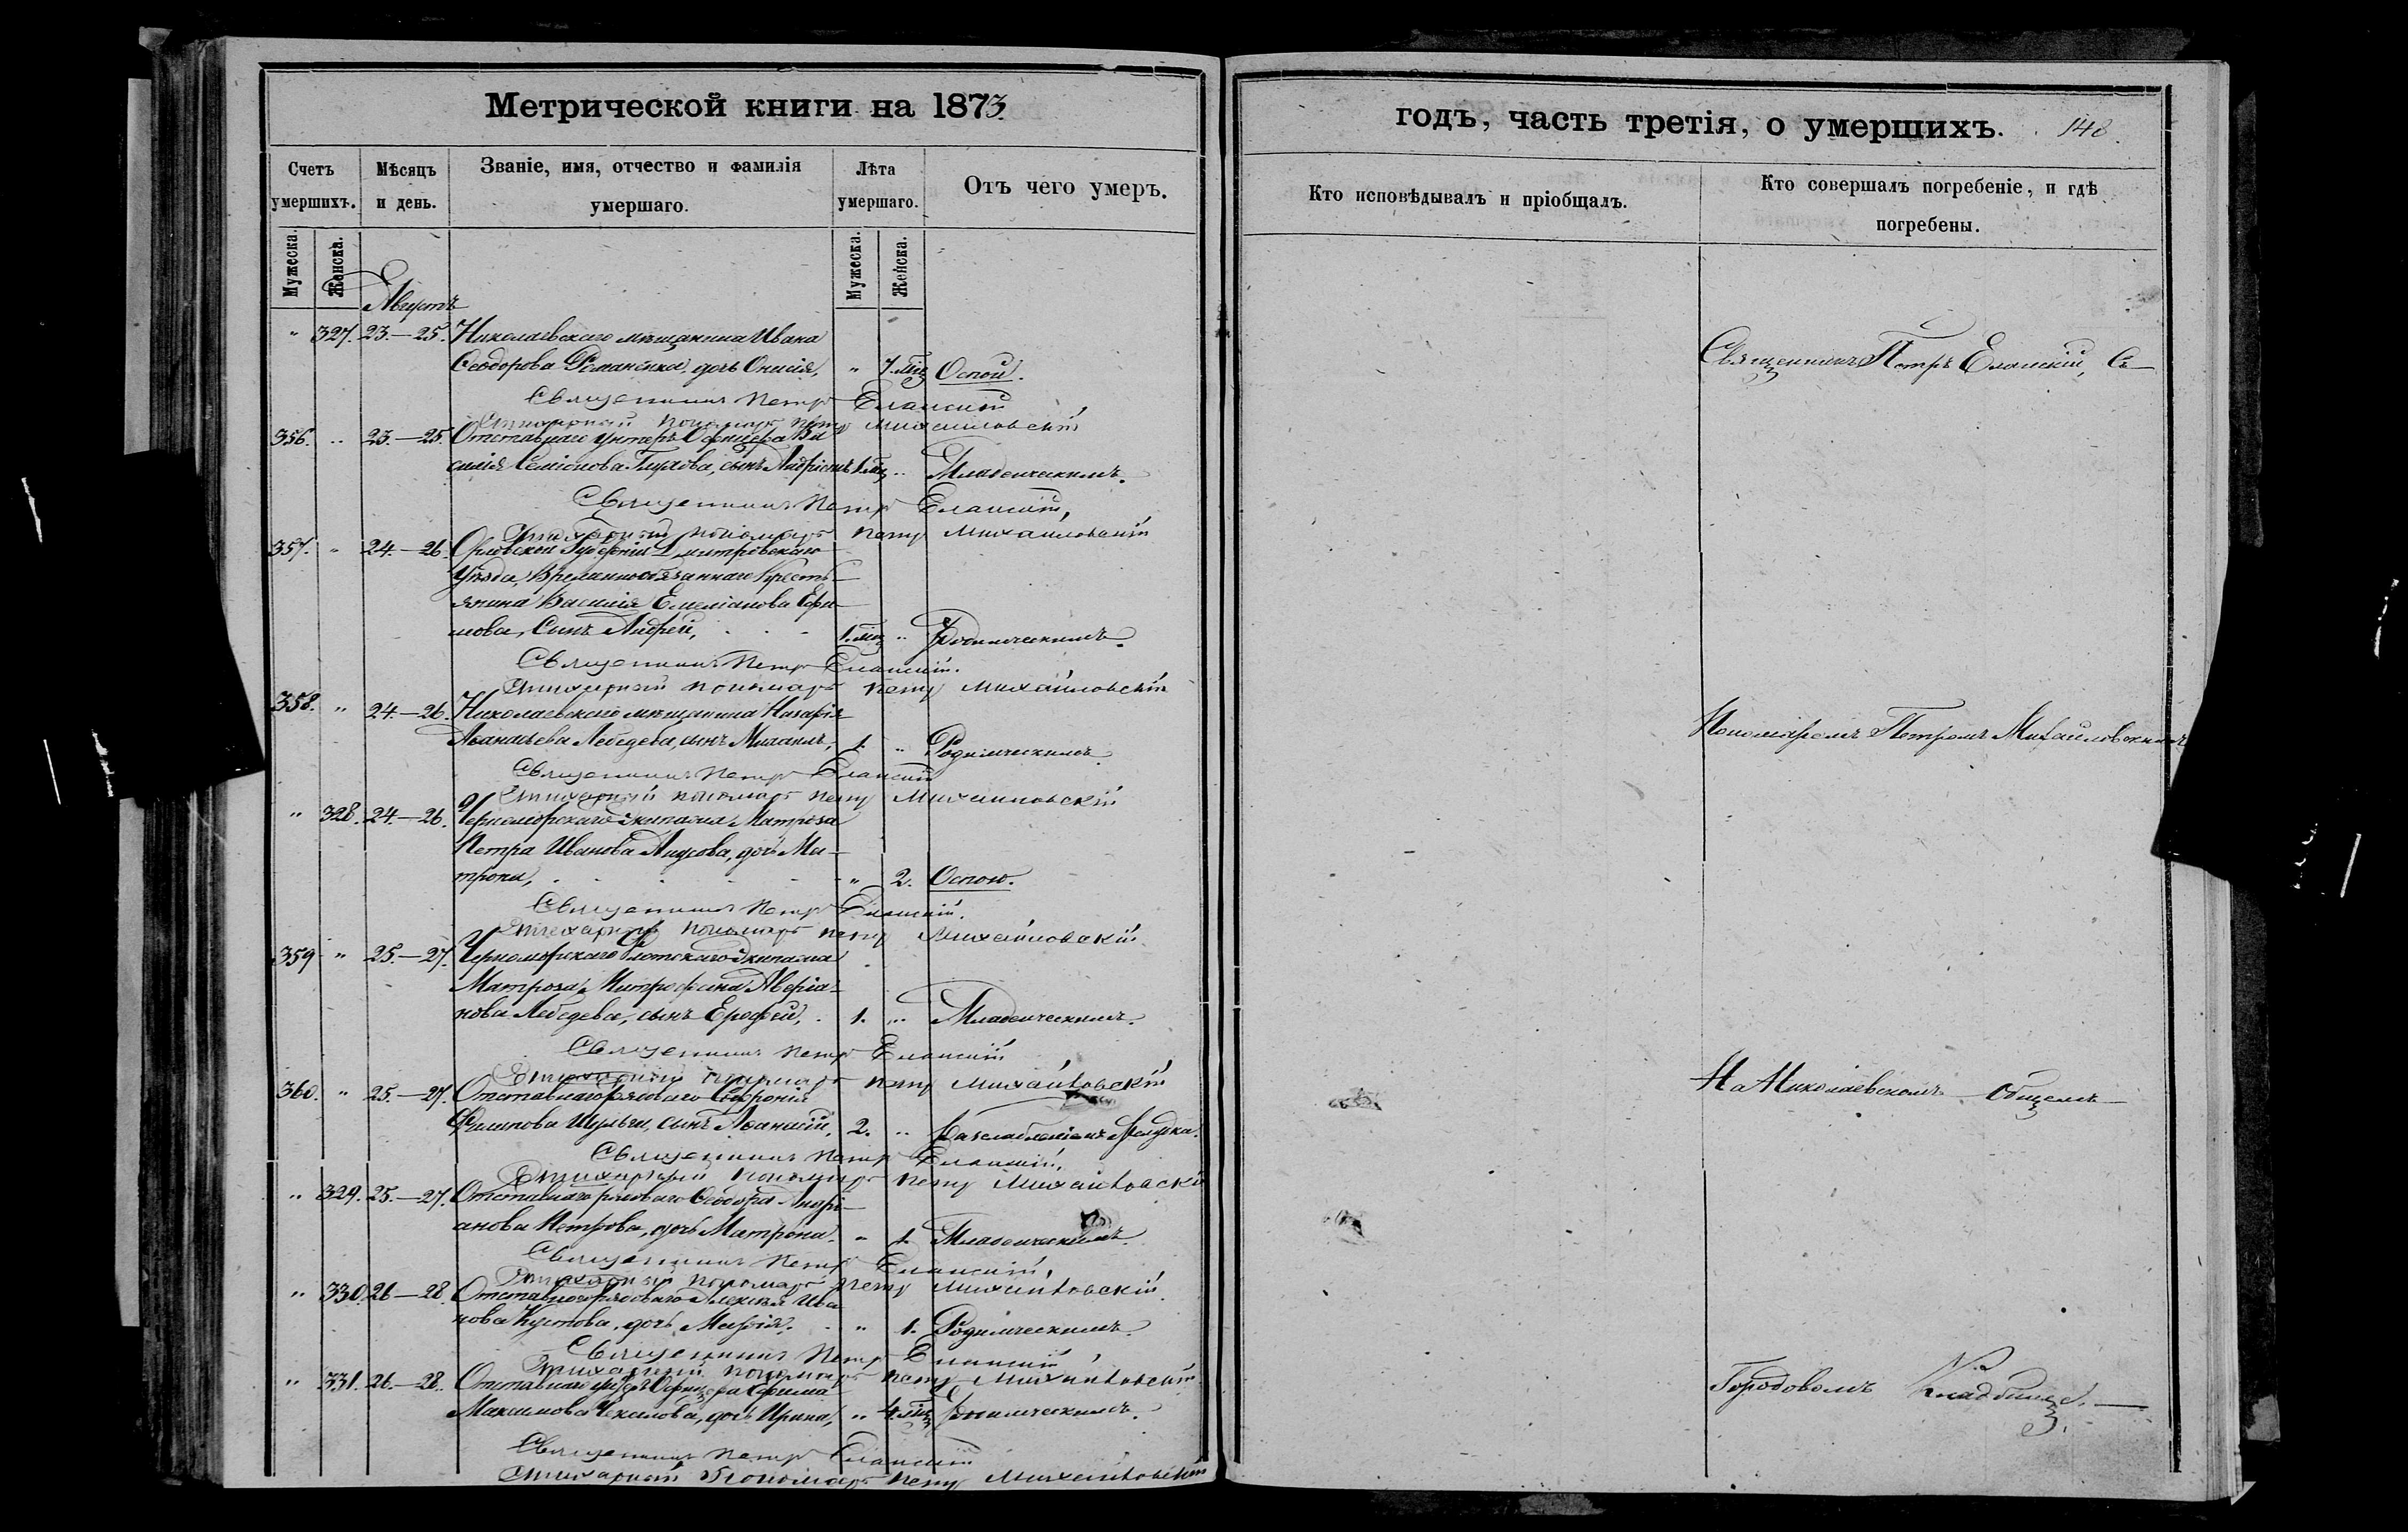 Метрической книги на 1873.
Счетъ умершихъ.
Мѣсяцъ и день.
Званіе, имя, отчество и фамилія умершаго.
Лѣта умершаго.
Отъ чего умеръ.
Мужеска.
Женска.
Мужеска.
Женска.
Августъ
" 327. 23.—25. Николаевскаго мѣщанина Ивана
Ѳеодорова Романенка, дочь Онисія, " 7. мѣс Оспой.
Священникъ Петръ Еланскій
Стихарный пономарь Петръ Михайловскій
356. " 23.—25. Отставнаго унтеръ Офицера Ва
силія Семіонова Глухова, сынъ Андріанъ 1. мѣс " Младенческимъ.
Священникъ Петръ Еланскій,
Стихарный пономарь Петръ Михайловскій
357. " 24.—26. Орловской Губерніи Дмитровскаго
Уѣзда, Временнообязаннаго Кресть-
янина Василія Емеліанова Ефи-
мова, Сынъ Андрей, 1. мѣс " Родимческимъ.
Священникъ Петръ Еланскій.
Стихарный пономарь Петръ Михайловскій
358. " 24.—26. Николаевскаго мѣщанина Назарія
Аѳанасьева Лебедева, сынъ Михаилъ, 1. " Родимческимъ.
Священникъ Петръ Еланскій
Стихарный пономарь Петръ Михайловскій
" 328. 24.—26. Черноморскаго экипажа Матроза
Петра Иванова дочь Ма-
трона, " 2. Оспою.
Священникъ Петръ Еланскій.
Стихарный пономарь Петръ Михайловскій.
359 " 25.—27. Черноморскаго Флотскаго экипажа
Матроза, Митрофана Аверіа-
нова Лебедева, сынъ Ерофей, 1. " Младенческимъ.
Священникъ Петръ Еланскій
Стихарный пономарь Петръ Михайловскій
360. " 25.—27. Отставнаго рядоваго Софронія
Филипова Шульги, сынъ Аѳанасій, 2. " Разслабленіемъ Желудка.
Священникъ Петръ Еланскій,
Стихарный пономарь Петръ Михайловскій
" 329. 25.—27. Отставнаго рядоваго Ѳеодора Андрі-
анова Петрова, дочь Матрона. " 1. Младенческимъ.
Священникъ Петръ Еланскій,
Стихарный пономарь Петръ Михайловскій.
" 330. 26—28. Отставнаго рядоваго Алексѣя Ива
нова Кустова, дочь Марія. " 1. Родимческимъ.
Священникъ Петръ Еланскій
Стихарный пономарь Петръ Михайловскій
" 331. 26—28. Отставнаго унтеръ Офицера Ефима
Максимова дочь Ирина, " 4. мѣс Родимческимъ.
Священникъ Петръ Еланскій
Стихарный Пономарь Петръ Михайловскій
годъ, часть третія, о умершихъ. 148.
Кто исповѣдывалъ и пріобщалъ.
Кто совершалъ погребеніе, и гдѣ погребены.
Священникъ Петръ Еланскій, Съ
Пономаремъ Петромъ Михайловскимъ
На Николаевскомъ Общемъ
Городовомъ Кладбищѣ.